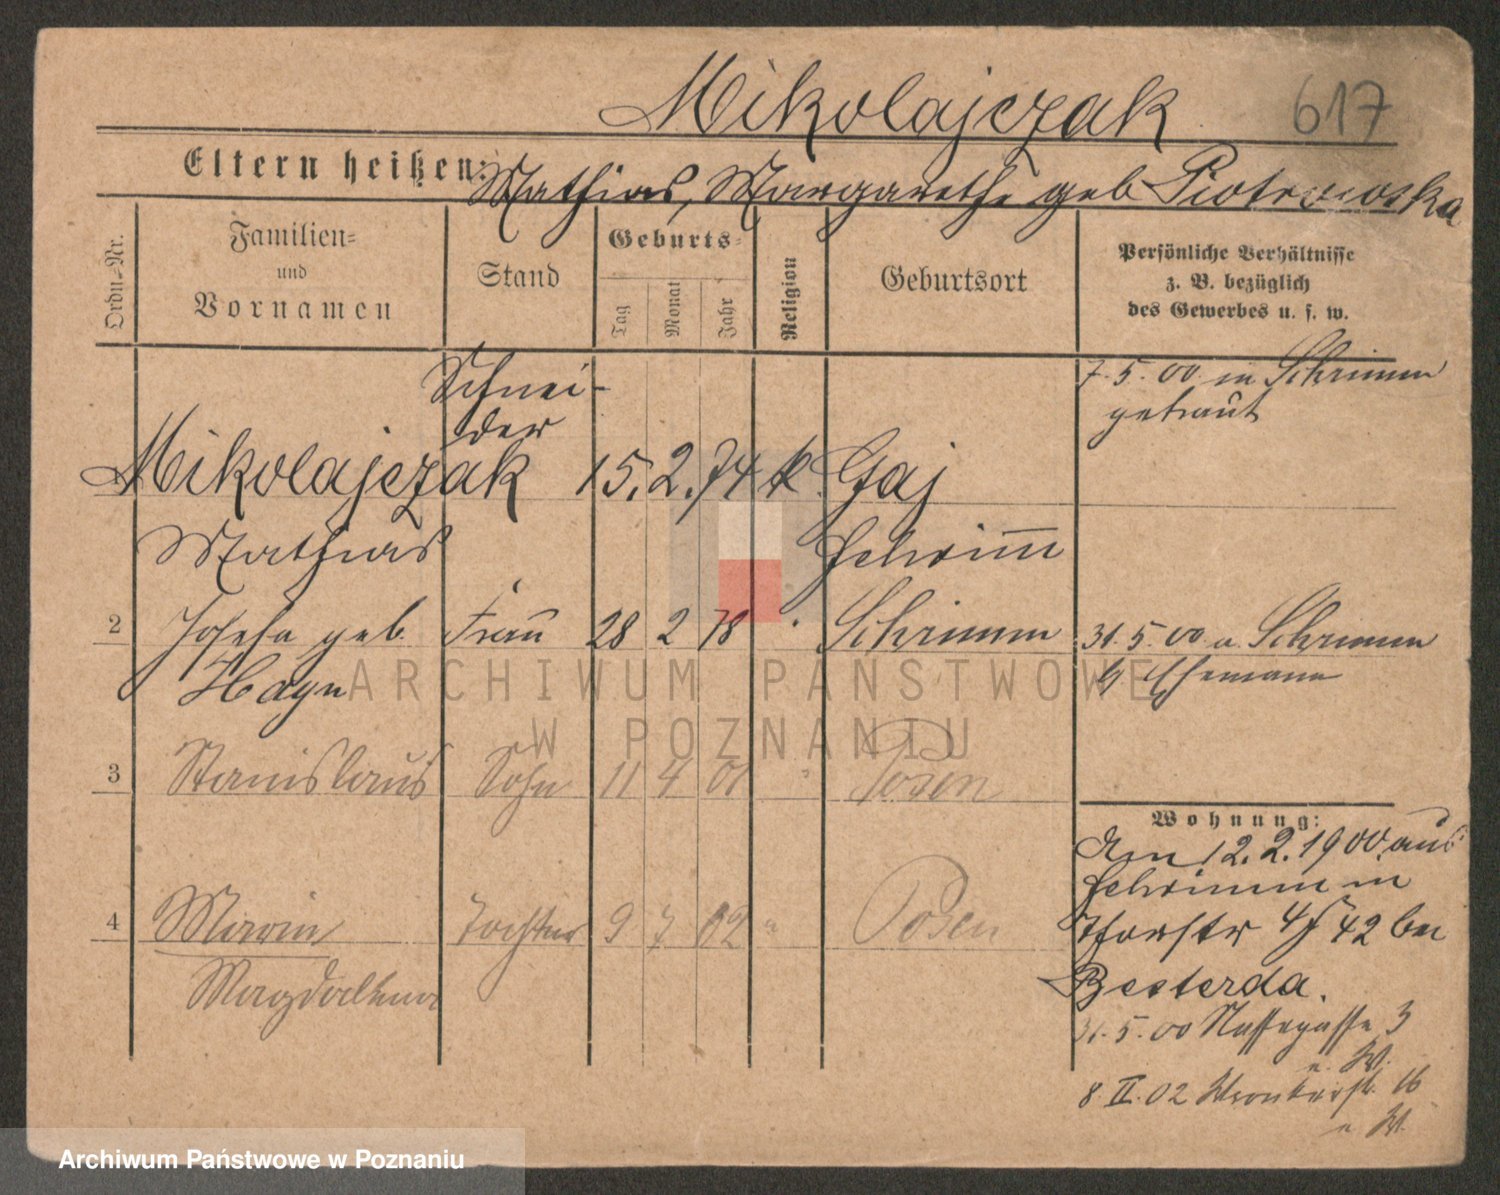 Mikolajczak 617
Eltern heißen: Mathias, Margarethe geb Piotrowska
Ordn.-Nr.
Familien-
und
Vornamen
Stand
Geburts-
Tag
Monat
Jahr
Religion
Geburtsort
Persönliche Verhältnisse
z. B. bezüglich
des Gewerbes u. s. w.
7.5.00 in Schrimm
getraut
Schnei-
der
1 Mikolajczak 15. 2. 74 k. Gaj
Mathias Schrimm
2 Josefa geb. Frau 28 2 78 " Schrimm 31.5.00 a. Schrimm
Hayn Ehemann
3 Stanislaus Sohn 11 4 01 " Posen
Wohnung:
Am 12.2.1900 aus
Schrimm in
4 Marie Tochter 9 7 02 " Posen
Magdalena
42 bei
Besterda.
31.5.00 Nassegasse 3
a. W.
8.II.02 Wronkerstr. 16
a. W.
ARCHIWUM PAŃSTWOWE
W POZNANIU
Archiwum Państwowe w Poznaniu